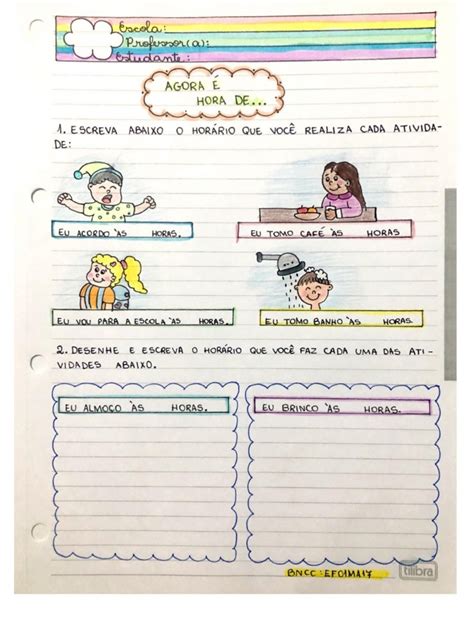 Escola:
Professor(a):
Estudante:
AGORA É
HORA DE...
1. ESCREVA ABAIXO O HORÁRIO QUE VOCÊ REALIZA CADA ATIVIDA-
DE:
EU ACORDO ÀS HORAS.
EU TOMO CAFÉ ÀS HORAS
EU VOU PARA A ESCOLA ÀS HORAS.
EU TOMO BANHO ÀS HORAS.
2. DESENHE E ESCREVA O HORÁRIO QUE VOCÊ FAZ CADA UMA DAS ATI-
VIDADES ABAIXO.
EU ALMOÇO ÀS HORAS.
EU BRINCO ÀS HORAS.
BNCC: EF01MA17
tilibra